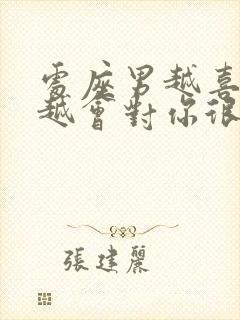 處座男越喜
越會對你很
張建麗